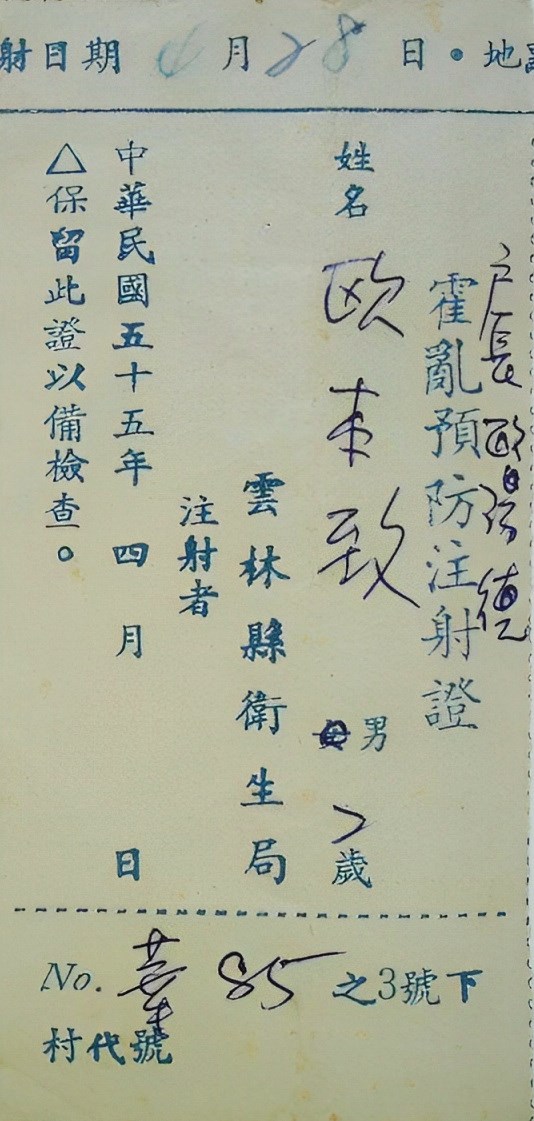 射日期 4月28日・地
戶長 歐陽德
霍亂預防注射證
姓名 歐来致 男 2歲
雲林縣衛生局
注射者
中華民國五十五年 四月 日
△保留此證以備檢查。
No. 華 85 之3號下
村代號